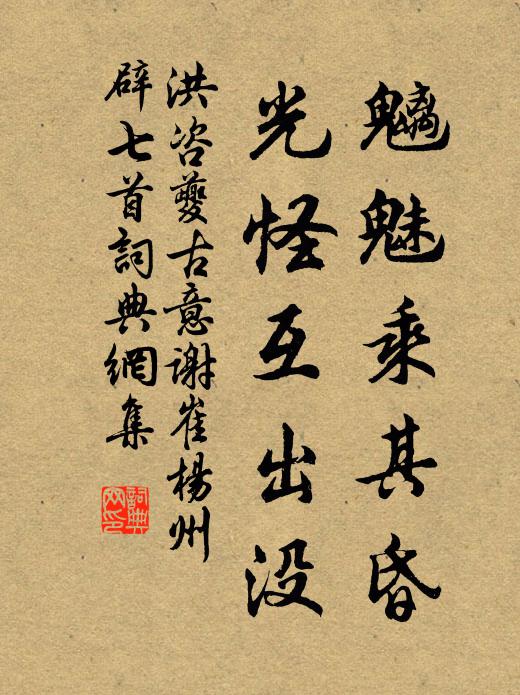 魑魅乘其昏
光怪互出没
洪咨夔古意謝崔楊州
辟七首詞典網集
詞典网印